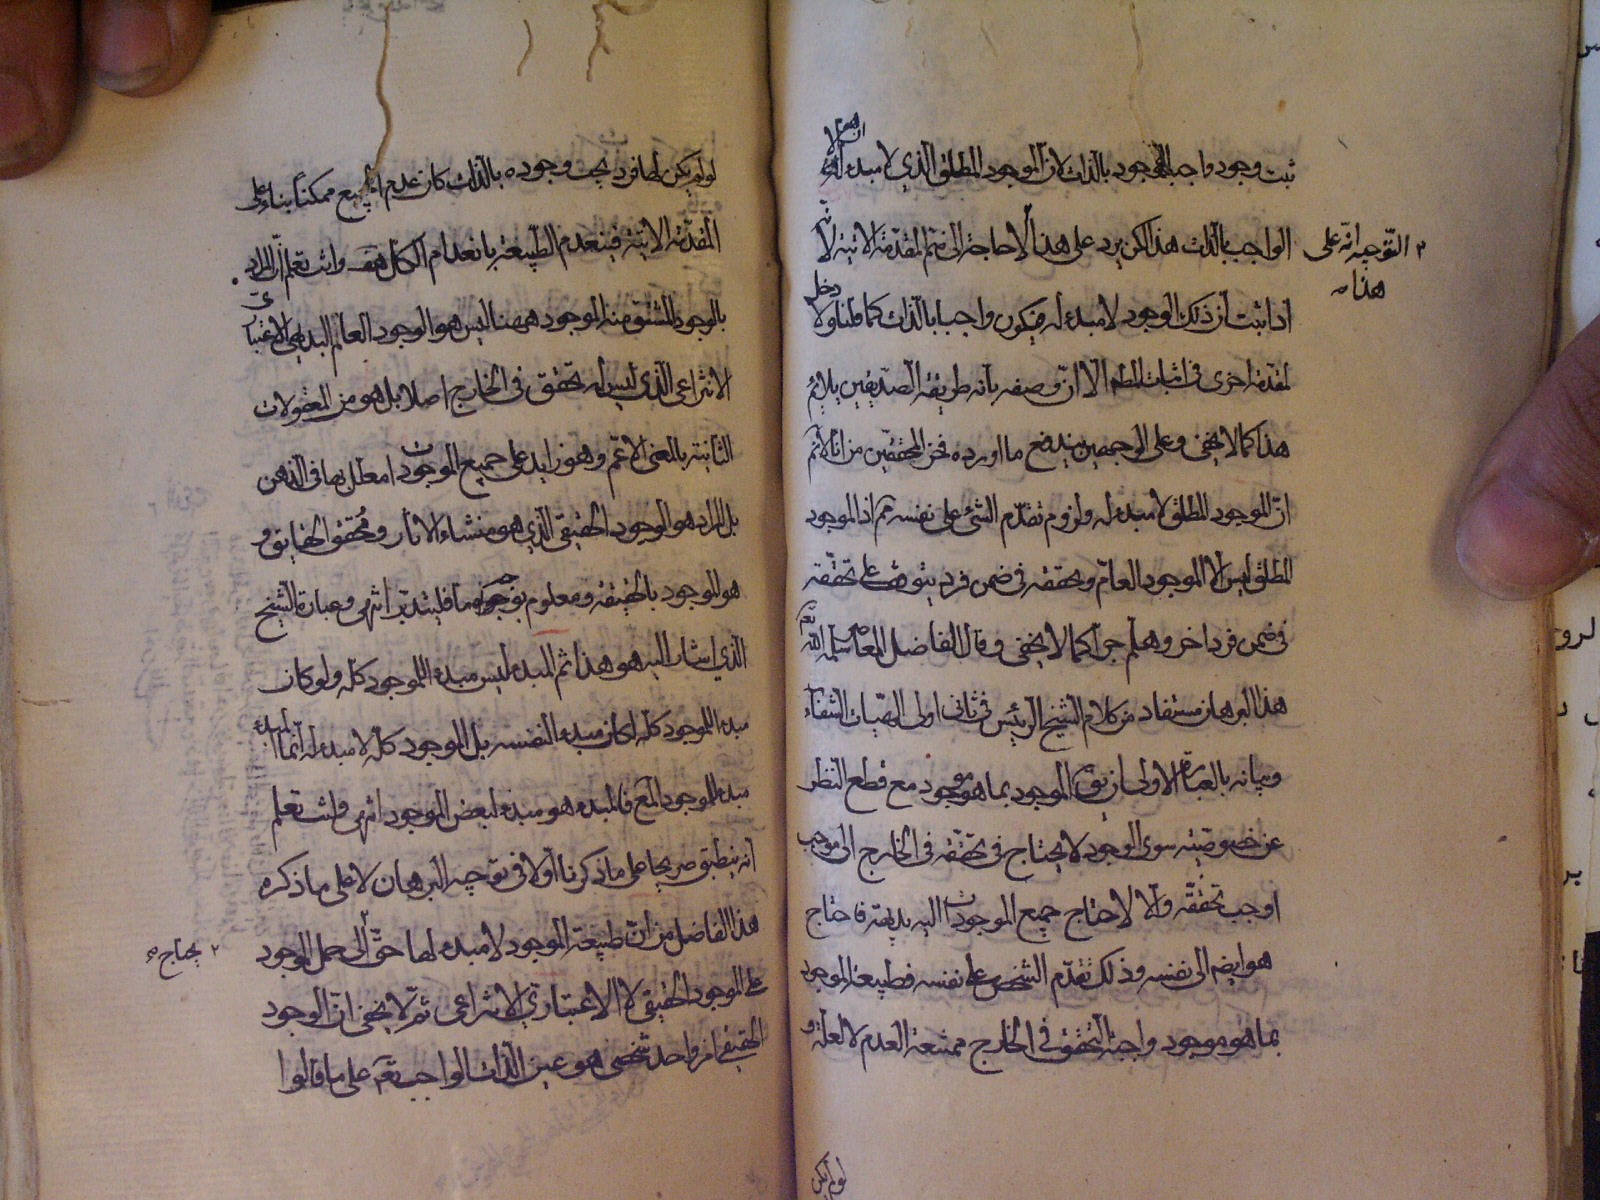 ثبت وجود واجب الوجود بالذات لان الموجود المطلق الذي لا مبدء له
الواجب بالذات هذا لكن يرد على هذا ان لا حاجة الى ضم المقدمة الاتية لانه
٢ التوجيه انه على
هذا
اذا ثبت ان ذلك الوجود لا مبدء له فيكون واجبا بالذات كما قلنا ولا دخل
لمقدمة اخرى في اثبات المط الا ان وصفه بانه طريقة الصديقين يلائم
هذا كما لا يخفى وعلى الوجهين يندفع ما اورده فخر المحققين من انا لا نم
ان الموجود المطلق لا مبدء له ولزوم تقدم الشئ على نفسه مم اذ الموجود
المطلق ليس الا الموجود العام وتحققه في ضمن فرد يتوقف على تحققه
في ضمن فرد اخر وهلم جرا كما لا يخفى وقال الفاضل المعاصر سلمه الله
هذا البرهان مستفاد من كلام الشيخ الرئيس في ثاني اولى الهيات الشفاء
وبيانه بالعبارة الاولى ان يق الموجود بما هو موجود مع قطع النظر
عن خصوصيته سوى الوجود لا يحتاج في تحققه في الخارج الى موجب
اوجب تحققه والا لاحتاج جميع الموجودات اليه بديهة فاحتاج
هو ايضا الى نفسه وذلك تقدم الشخص على نفسه فطبيعة الموجود
بما هو موجود واجبة التحقق في الخارج ممتنعة العدم لا لعلة و
لو لم يكن
لو لم يكن لها فرد يجب وجوده بالذات كان عدم الجميع ممكنا بناء على
المقدمة الاتية فينعدم الطبيعة بانعدام الكل هف وانت تعلم ان المراد
بالوجود المشتق منه الموجود ههنا ليس هو الوجود العام البديهي الاعتباري
الانتزاعي الذي ليس له تحقق في الخارج اصلا بل هو من المعقولات
الثانية بالمعنى الاعم وهو زايد على جميع الموجودات معلل بها في الذهن
بل المراد هو الوجود الحقيقي الذي هو منشاء الاثار ومحقق الحقايق و
هو الموجود بالحقيقة ومعلوم بوجه ما فليتدبر انتهى وعبارة الشيخ
الذي اشار اليه هو هذا ثم المبدء ليس مبدء للموجود كله ولو كان
مبدء للموجود كله لكان مبدء لنفسه بل الموجود كله لا مبدء له انما المبدء
مبدء للموجود المع فالمبدء هو مبدء لبعض الموجود انتهى وانت تعلم
انه ينطبق صريحا على ما ذكرنا اولا في توجيه البرهان لا على ما ذكره
هذا الفاضل من ان طبيعة الموجود لا مبدء لها حتى الى حمل الوجود
٢ يحتاج صح
على الموجود الحقيقي لا الاعتباري الانتزاعي ثم لا يخفى ان الوجود
الحقيقي امر واحد شخصي هو عين الذات الواجب تعه على ما قالوا